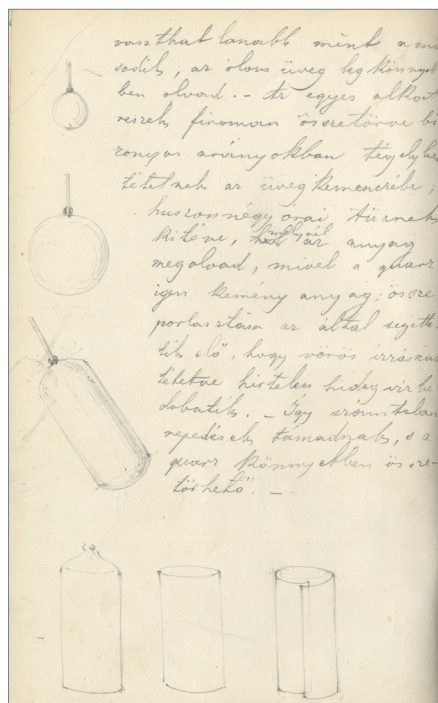 voszthatlanabb mint a má
sodik, az ólom üveg legkönnyeb
ben olvad. - Az egyes alkat
részek finoman összetörve bi
zonyos arányokban tégelybe
tétetnek az üvegkemenczébe,
huszonnégy órai tűznek
kitéve, az anyag
megolvad, mivel a quarz
igen kemény anyag; össze
porlasztása az által segitte
tik elő, hogy vörös izzásnak
tétetve hirtelen hideg vízbe
dobatik. - Így számtalan
repedések támadnak, s a
quarz könnyebben össze-
törhető. -